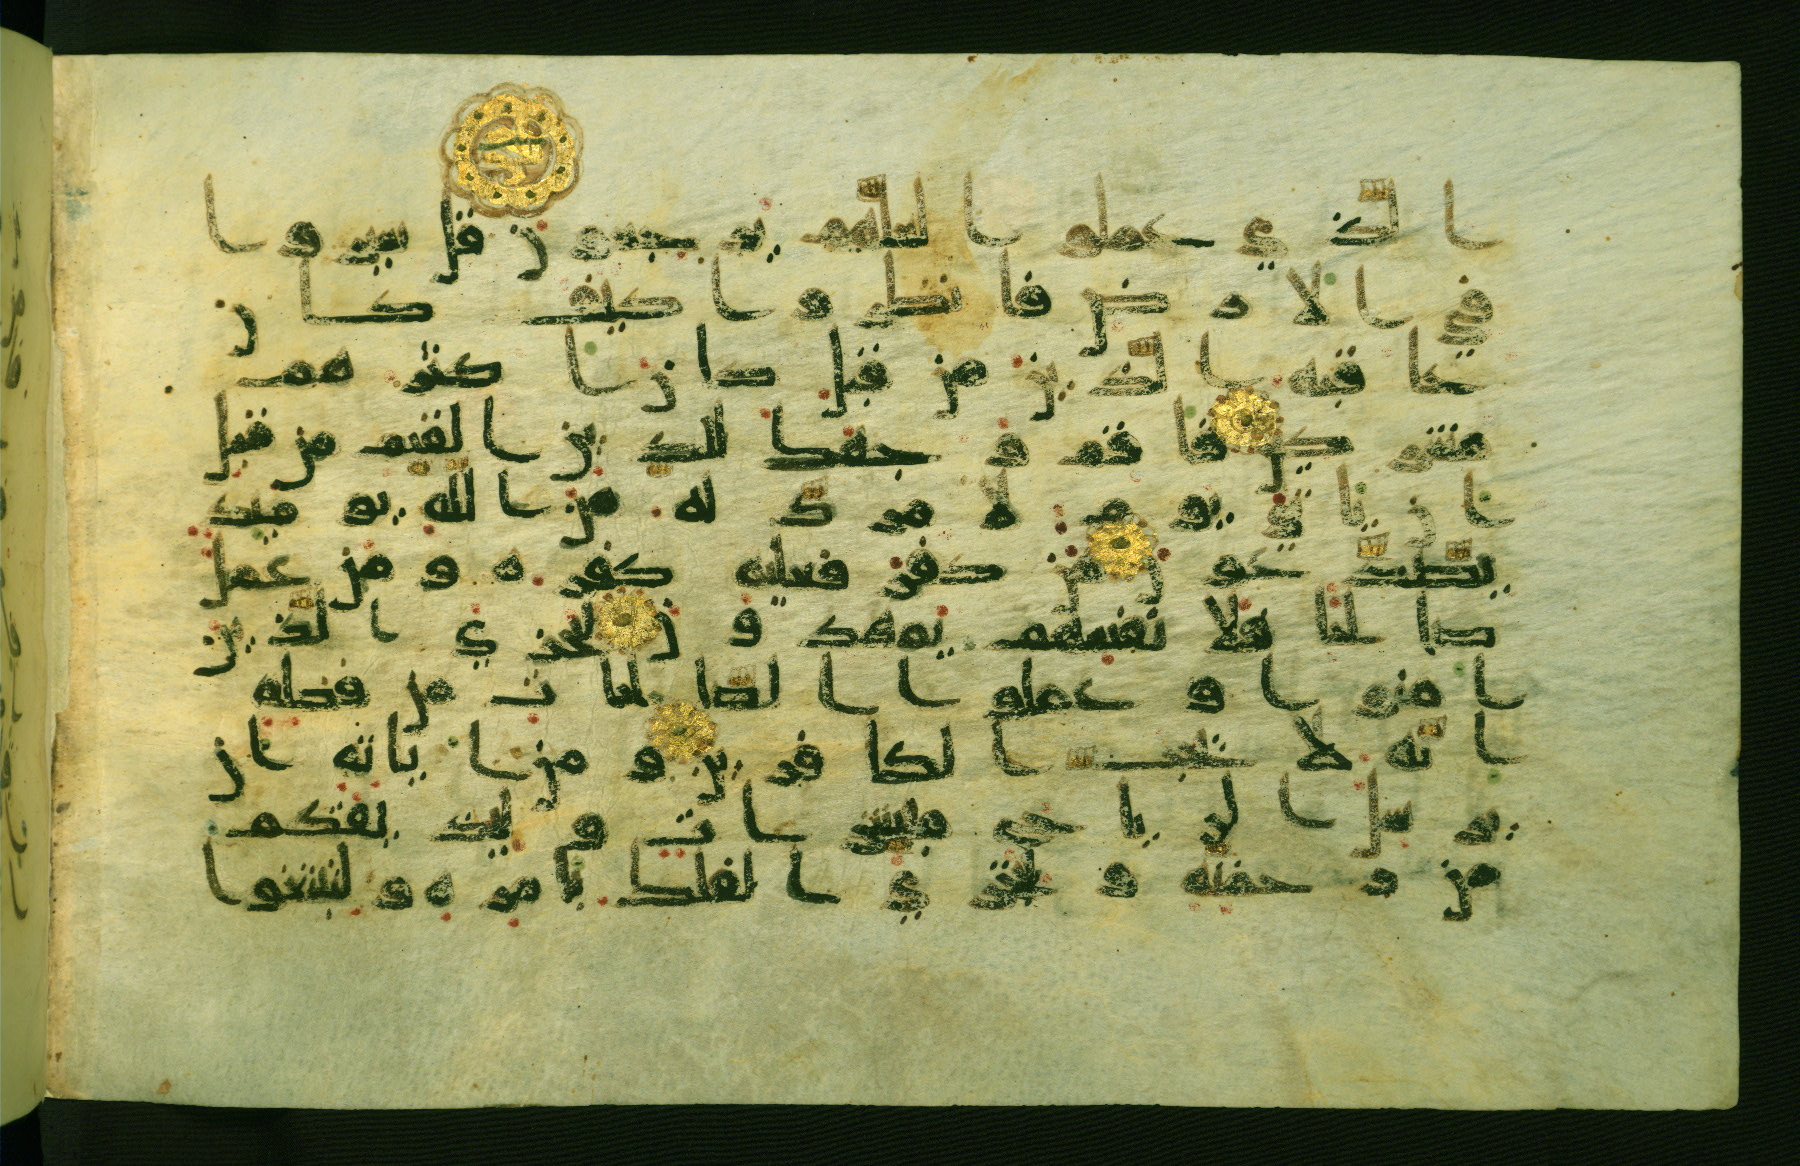 الذي عملوا لعلهم يرجعون قل سيروا
في الارض فانظروا كيف كان
عاقبة الذين من قبل كان اكثرهم
مشركين فاقم وجهك للدين القيم من قبل
ان ياتي يوم لا مرد له من الله يومئذ
يصدعون من كفر فعليه كفره ومن عمل
صالحا فلانفسهم يمهدون ليجزي الذين
امنوا وعملوا الصالحات من فضله
انه لا يحب الكافرين ومن اياته ان
يرسل الرياح مبشرات وليذيقكم
من رحمته ولتجري الفلك بامره ولتبتغوا